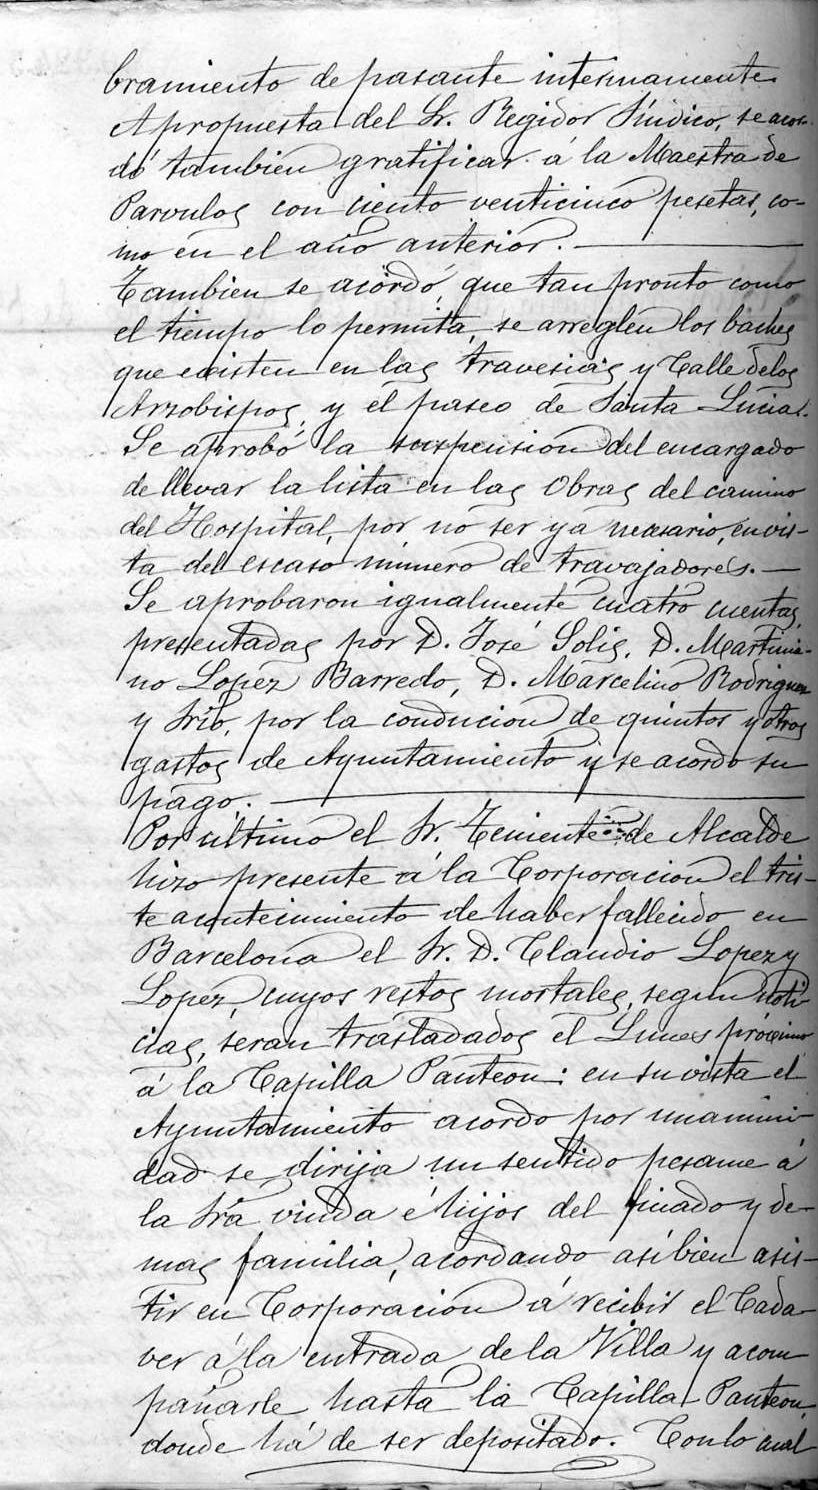 bramiento de pasante internamente.
A propuesta del Sr. Regidor Síndico, se acor-
dó tambien gratificar á la Maestra de
Parvulos con ciento venticinco pesetas, co-
mo en el año anterior.
Tambien se acórdó, que tan pronto como
el tiempo lo permita, se arreglen los baches
que existen en las travesias y Calle delos
Arzobispos, y el paseo de Santa Lucia.
Se aprobó la suspension del encargado
de llevar la lista en las Obras del camino
del Hospital, por no ser ya necesario, en vis-
ta del escaso número de travajadores.
Se aprobaron igualmente cuatro cuentas,
presentadas por D. José Solis, D. Martinia-
no Lopez Barredo, D. Marcelino Rodriguez
y Srio, por la conducion de quintos y otros
gastos de Ayuntamiento y se acordo su
pago.
Por último el Sr. Teniente de Alcalde
hizo presente á la Corporacion el tris-
te acontecimiento de haber fallecido en
Barcelona el Sr. D. Claudio Lopez y
Lopez, cuyos restos mortales, segun noti-
cias, seran trasladados el Lunes próximo
á la Capilla Panteon: en su vista el
Ayuntamiento acordo por unanimi-
dad se dirija un sentido pesame á
la Sra viuda é hijos del finado y de-
mas familia, acordando asi bien asis-
tir en Corporacion á recibir el Cada-
ver á la entrada de la Villa y acom
pañarle hasta la Capilla Panteon,
donde há de ser depositado. Con lo cual